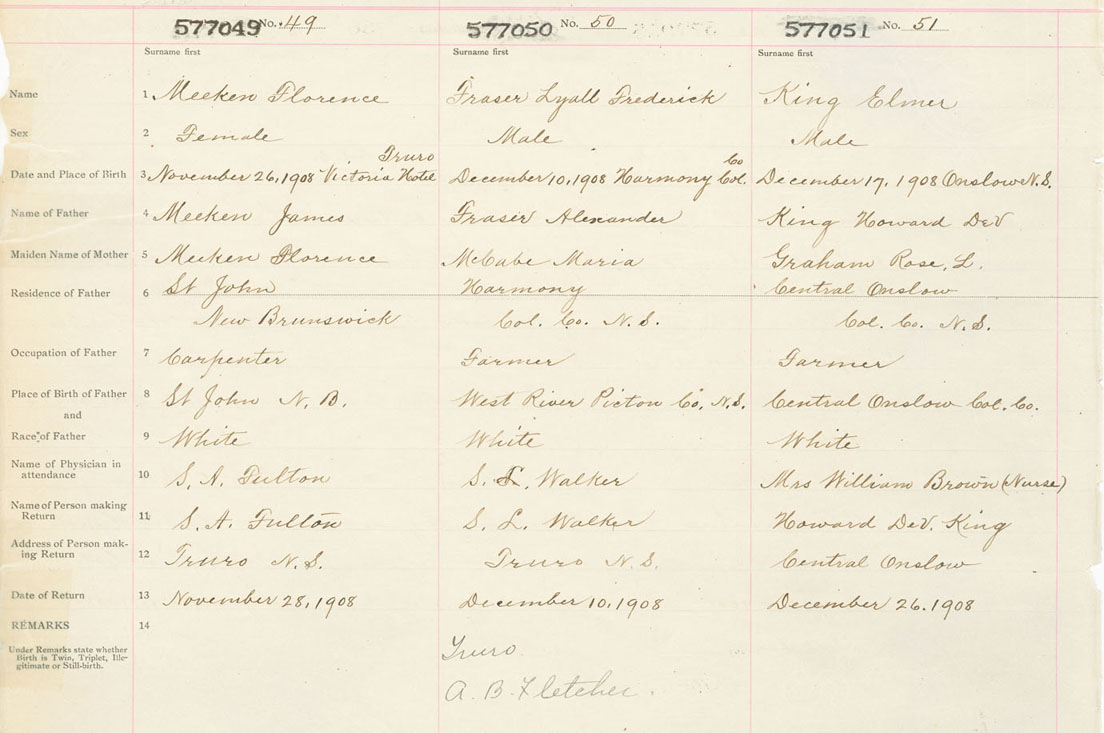 577049 No. 49 577050 No. 50 577051 No. 51
Surname first Surname first Surname first
Name 1 Meeken Florence Fraser Lyall Frederick King Elmer
Sex 2 Female Male Male
Truro Co
Date and Place of Birth 3 November 26, 1908 Victoria Hotel December 10, 1908 Harmony Col. December 17, 1908 Onslow N.S.
Name of Father 4 Meeken James Fraser Alexander King Howard DeV
Maiden Name of Mother 5 Meeken Florence McCabe Maria Graham Rose, L.
Residence of Father 6 St John Harmony Central Onslow
New Brunswick Col. Co. N.S. Col. Co. N.S.
Occupation of Father 7 Carpenter Farmer Farmer
Place of Birth of Father 8 St John N.B. West River Picton Co, N.S. Central Onslow Col. Co.
and
Race of Father 9 White White White
Name of Physician in
attendance 10 S. A. Fulton S. L. Walker Mrs William Brown (Nurse)
Name of Person making
Return 11 S. A. Fulton S. L. Walker Howard DeV. King
Address of Person mak-
ing Return 12 Truro N.S. Truro N.S. Central Onslow
Date of Return 13 November 28, 1908 December 10, 1908 December 26. 1908
REMARKS 14
Under Remarks state whether
Birth is Twin, Triplet, Ille-
gitimate or Still-birth.
Truro
A. B. Fletcher.